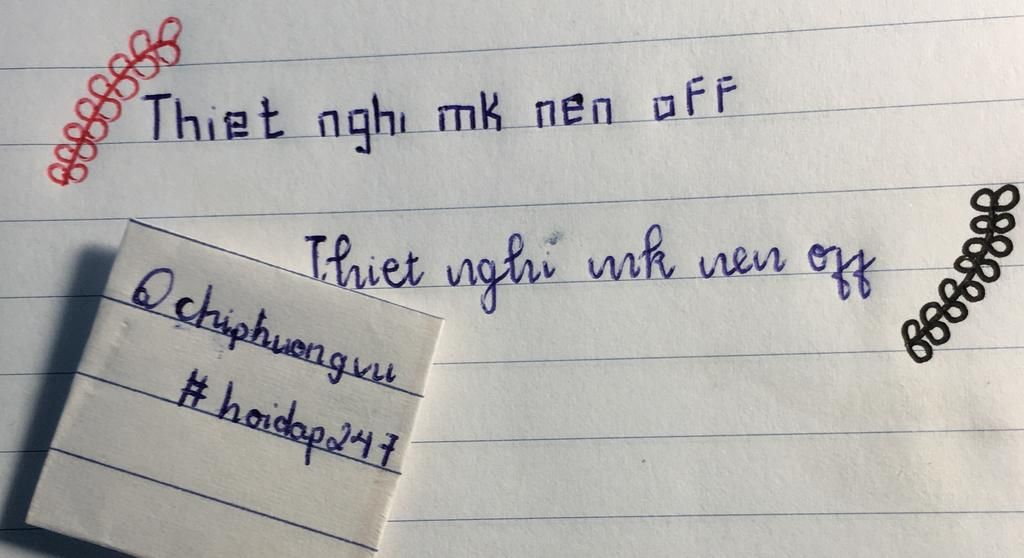 Thiet nghi mk nen off
Thiet nghi mk nen off
@chiphuongvu
#hoidap247